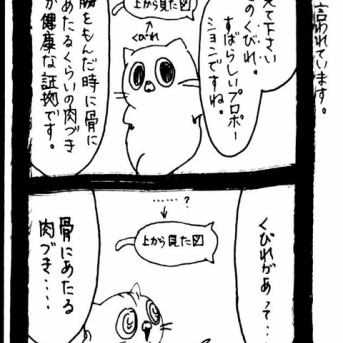 言われています。
て下さい
のくびれ。
すばらしいプロポー
ションですね。
上から見た図
くびれ
腸をもんだ時に骨に
あたるくらいの肉づき
が健康な証拠です。
くびれがあって・・・
・・・・・・？
上から見た図
骨にあたる
肉づき・・・・